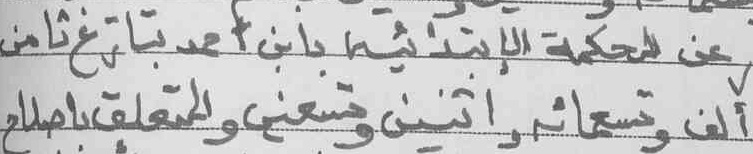 عن المحكمة الإبتدائية بابن احمد بتاريخ ثامن
ألف وتسعمائة واثنين وتسعين والمتعلق باصلاح